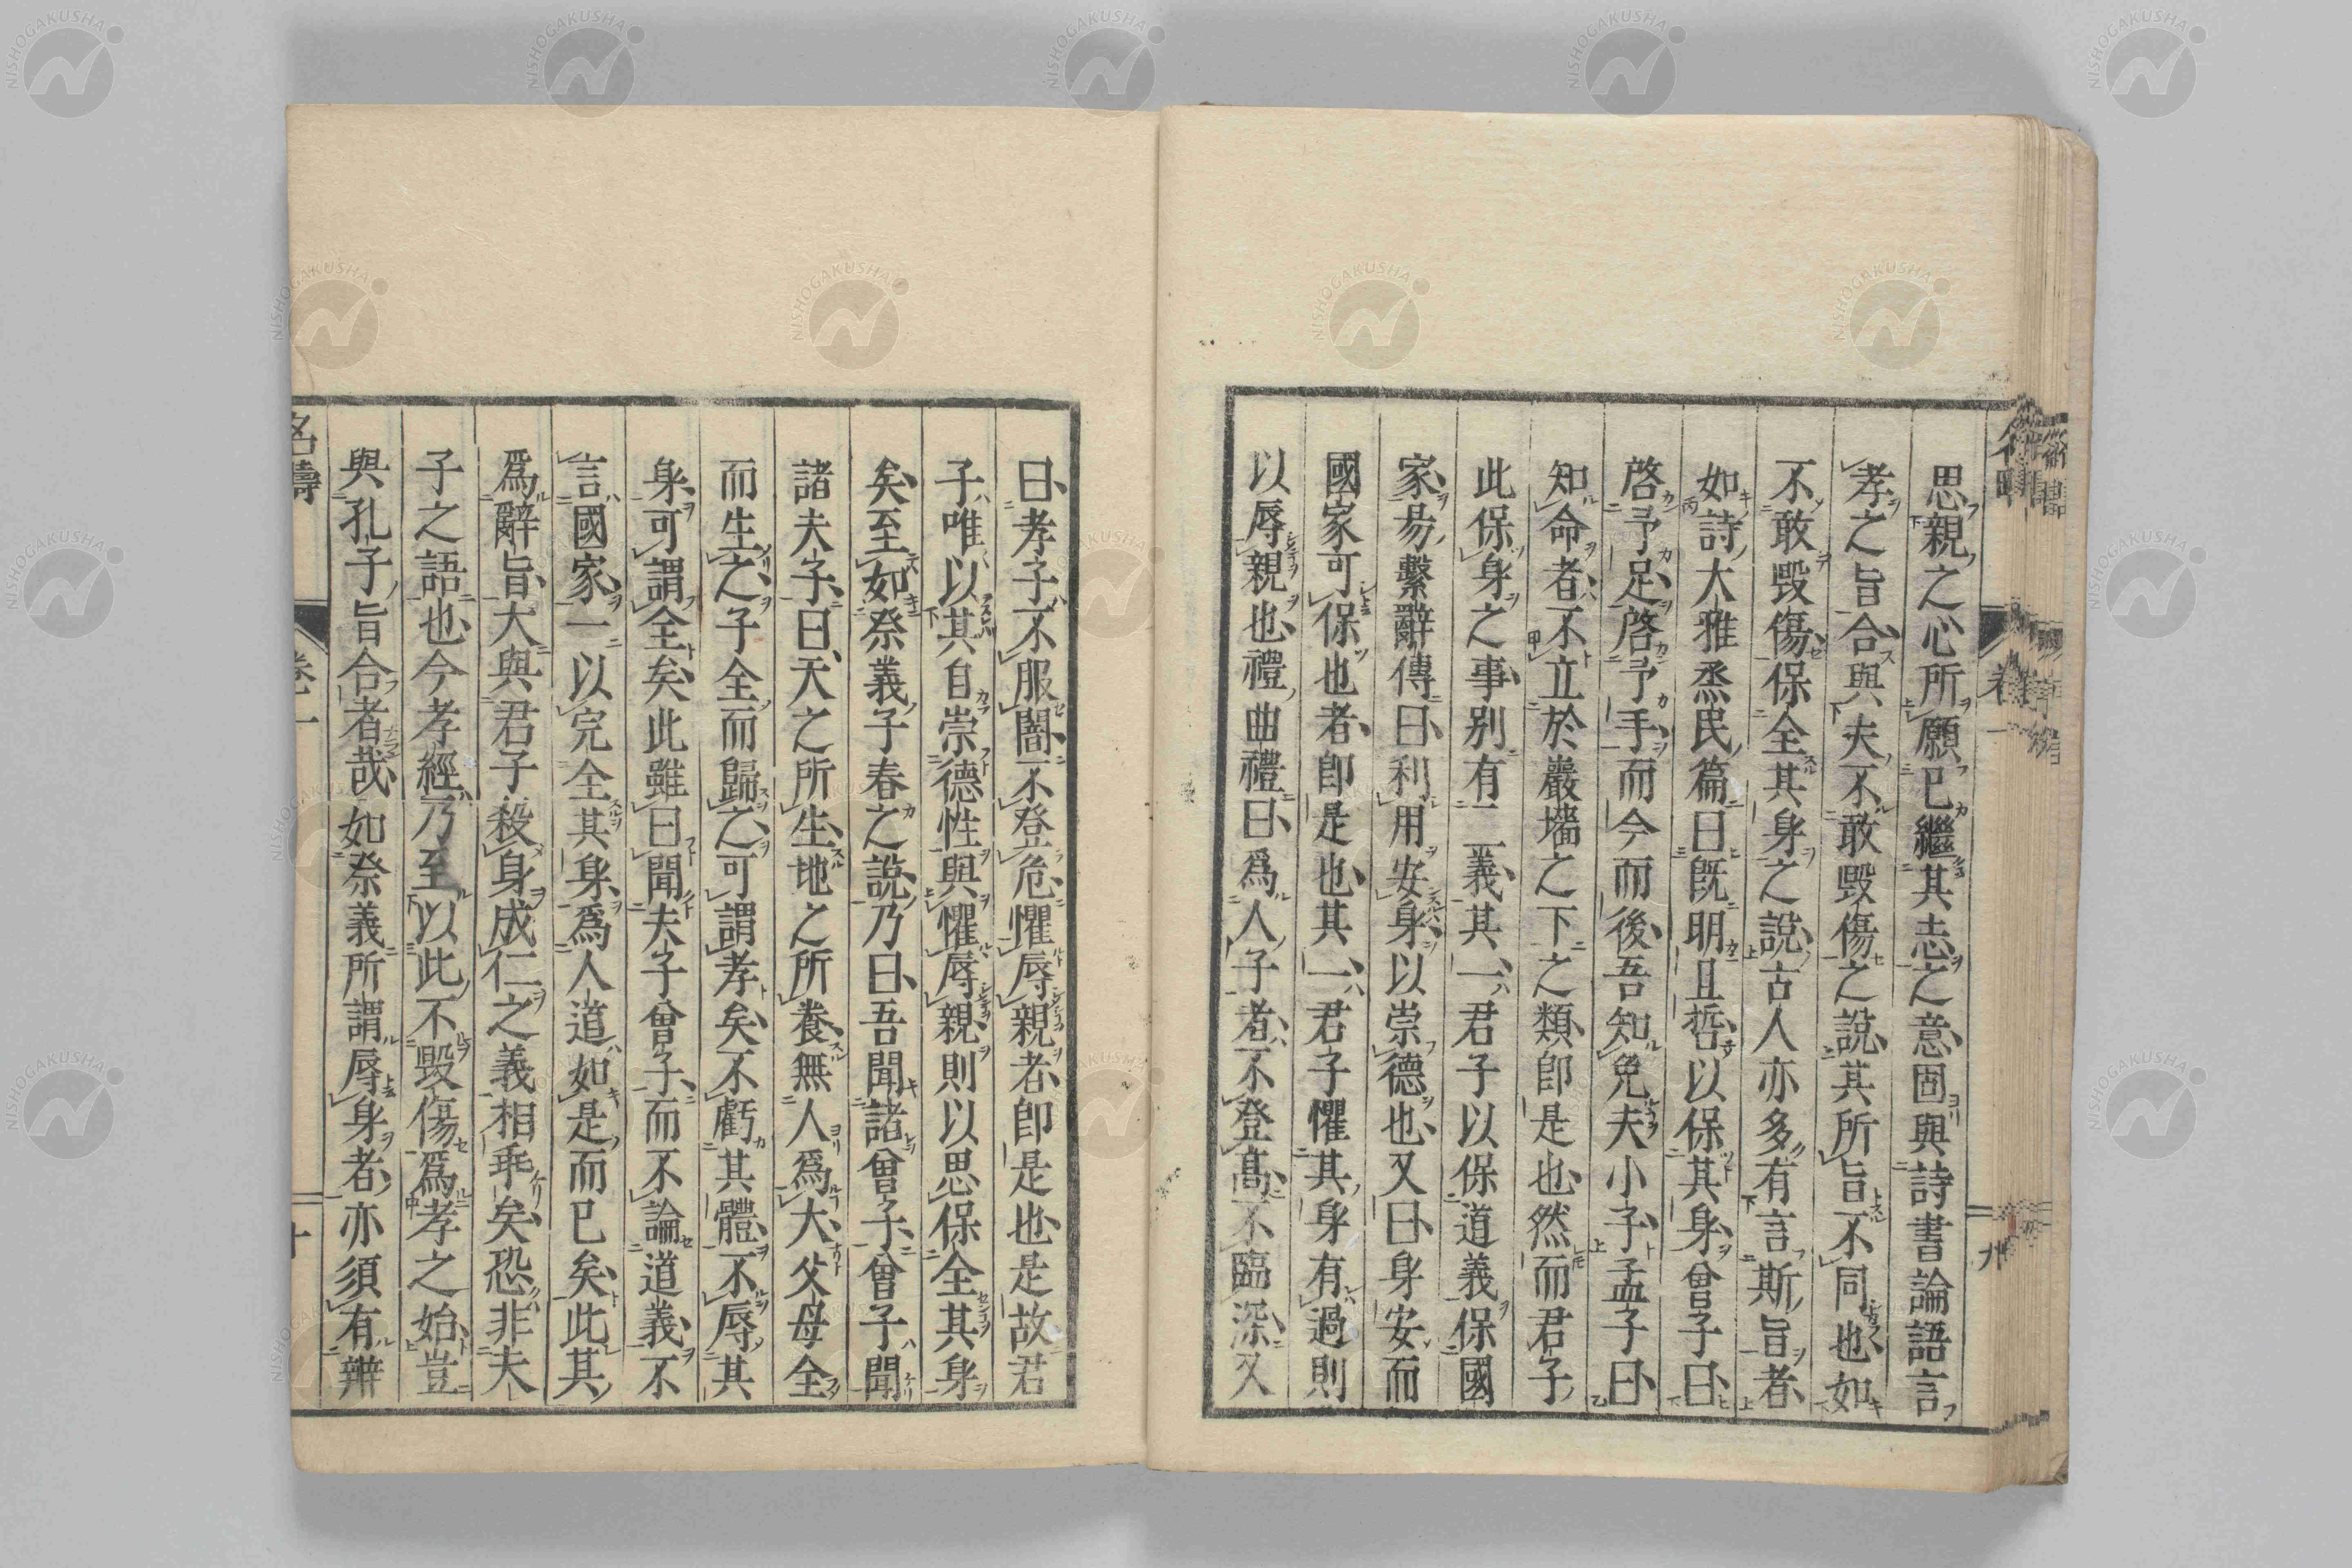 思親之心所願已繼其志之意固與詩書論語言
孝之旨合與夫不敢毀傷之說其所旨不同也如
不敢毀傷保全其身之說古人亦多有言斯旨者
如詩大雅烝民篇曰旣明且哲以保其身曾子曰
啓予足啓予手而今而後吾知免夫小子孟子曰
知命者不立於巖墻之下之類卽是也然而君子
此保身之事別有二義其一君子以保道義保國
家易繫辭傳曰利用安身以崇德也又曰身安而
國家可保也者卽是也其一君子懼其身有過則
以辱親也禮曲禮曰爲人子者不登高不臨深又
卷一
九
曰孝子不服闇不登危懼辱親者卽是也是故君
子唯以其自崇德性與懼辱親則以思保全其身
矣至如祭義子春之說乃曰吾聞諸曾子曾子聞
諸夫子曰天之所生地之所養無人爲大父母全
而生之子全而歸之可謂孝矣不虧其體不辱其
身可謂全矣此雖曰聞夫子曾子而不論道義不
言國家一以完全其身爲人道如是而已矣此其
爲辭旨大與君子殺身成仁之義相乖矣恐非夫
子之語也今孝經乃至以此不毀傷爲孝之始豈
與孔子旨合者哉如祭義所謂辱身者亦須有辨
名疇
卷一
十
NISHOGAKUSHA